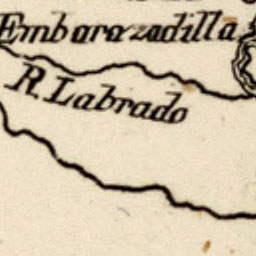 Embarazadilla
R. Labrado